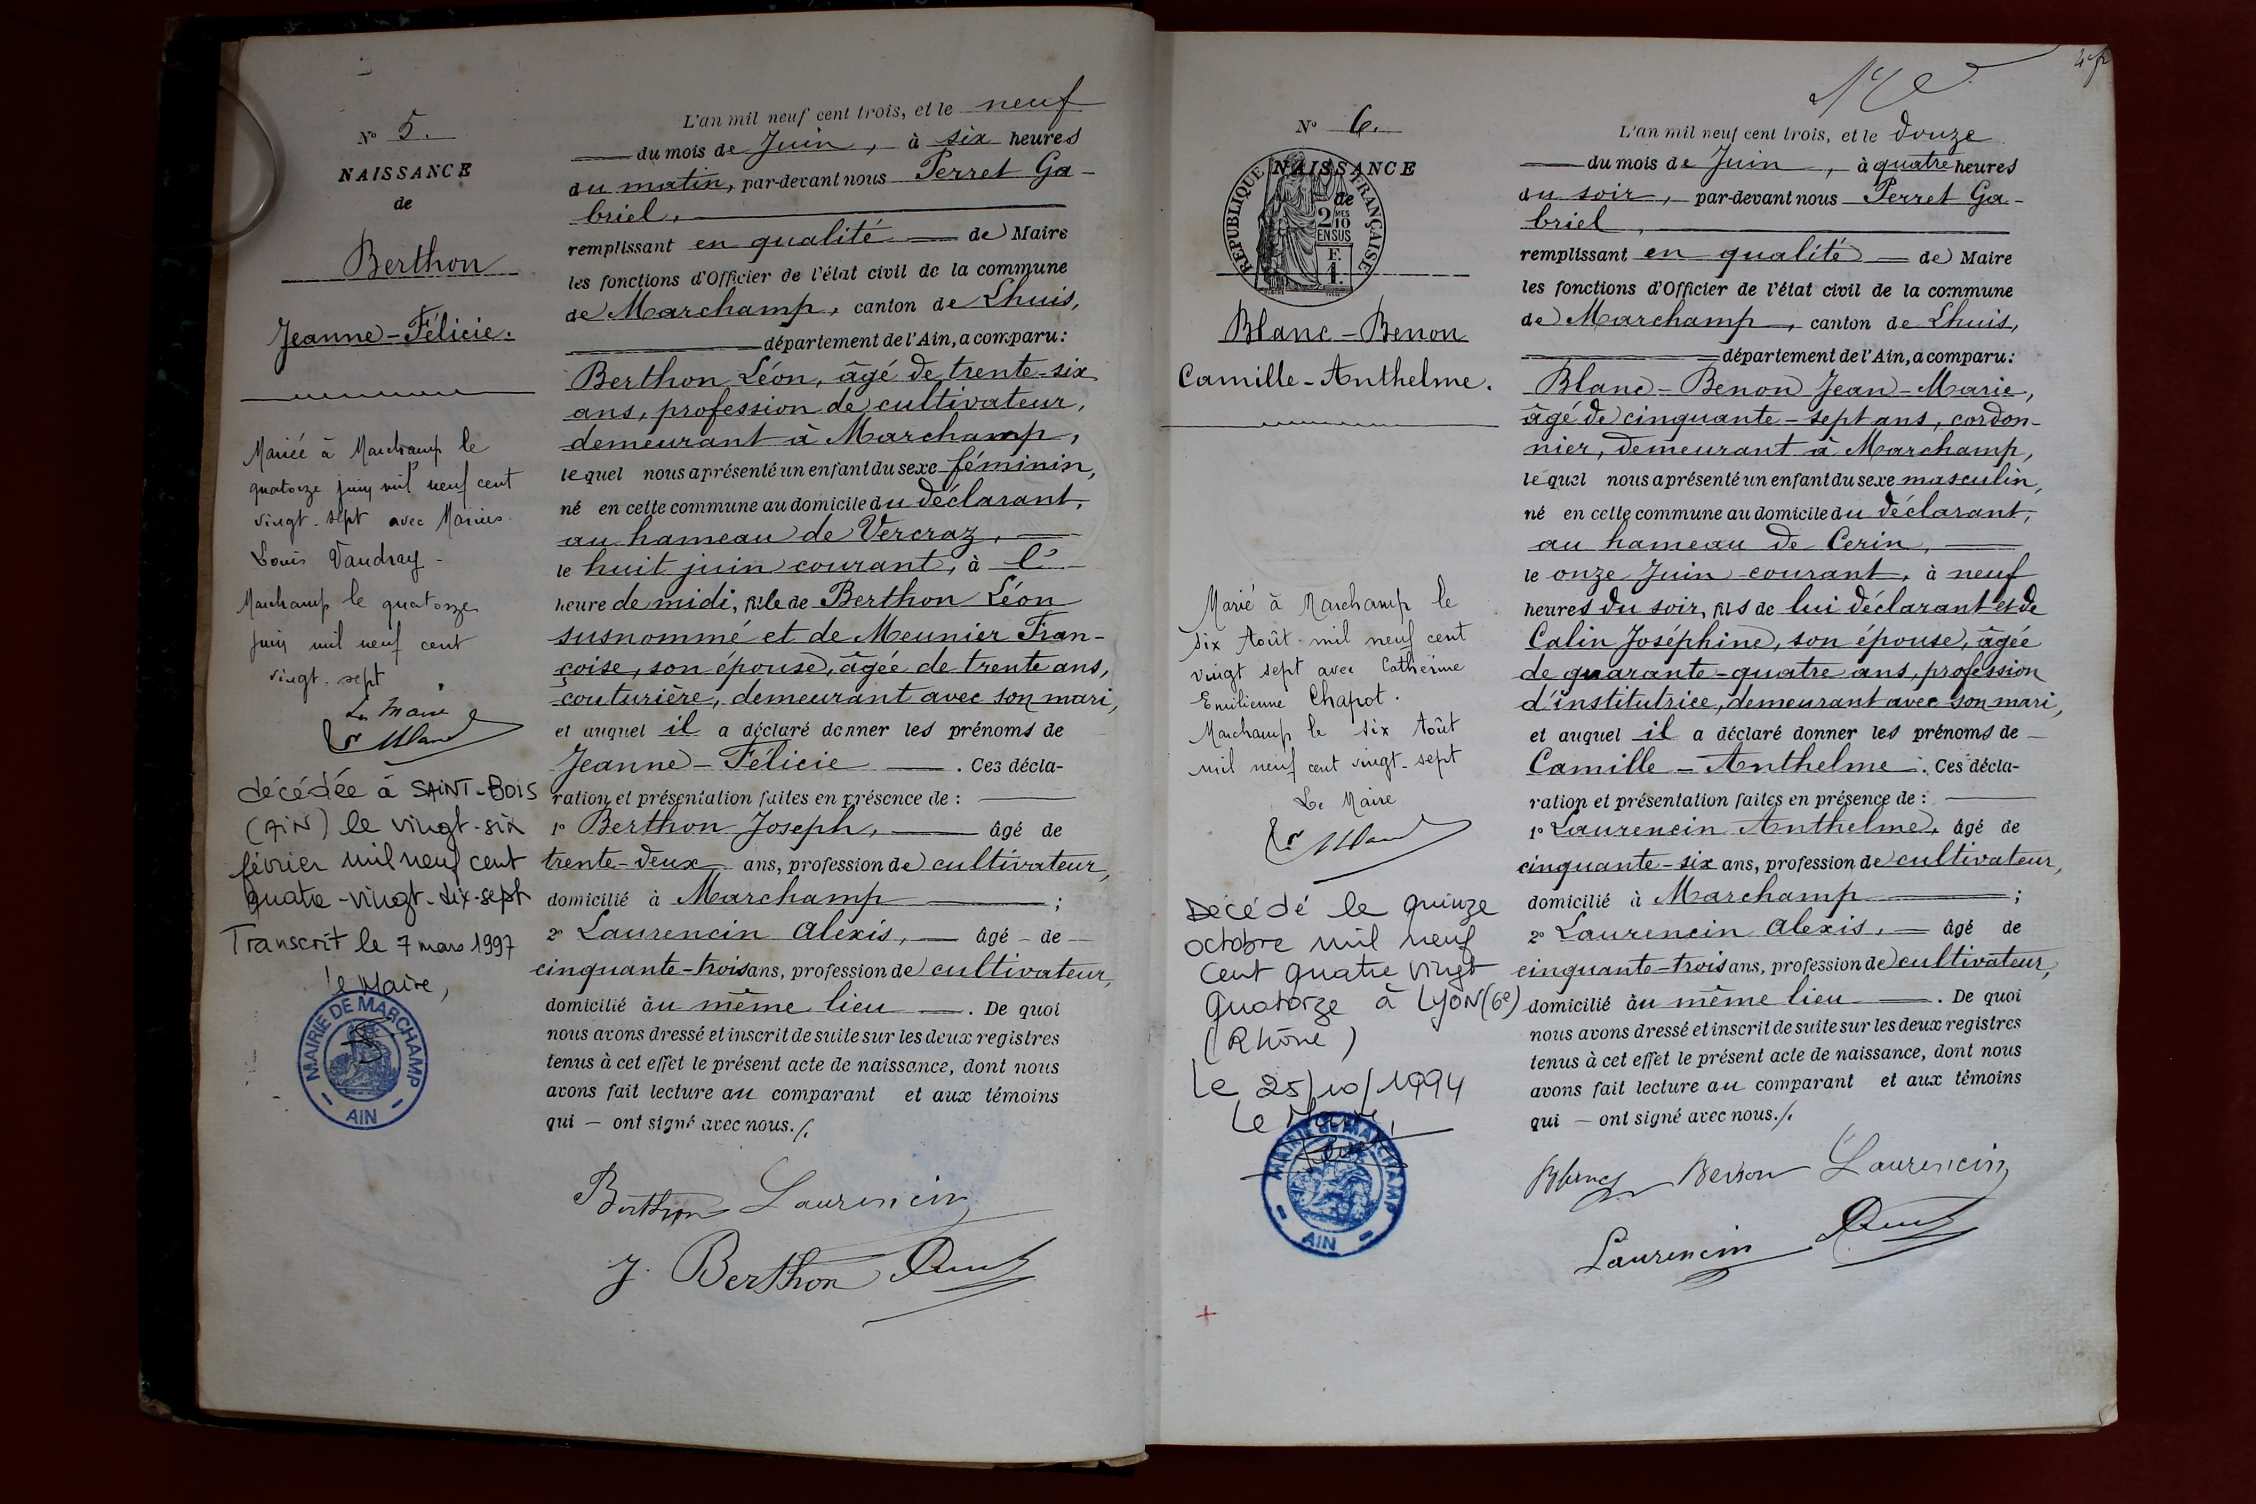 N° 5.
NAISSANCE
de
Berthon
Jeanne-Félicie.
Mariée à Marchamp le
quatorze juin mil neuf cent
vingt-sept avec Marius
Louis Vaudray -
Marchamp le quatorze
juin mil neuf cent
vingt-sept
Le Maire
décédée à SAINT-BOIS
(AIN) le vingt-six
février mil neuf cent
quatre-vingt-dix-sept
Transcrit le 7 mars 1997
le Maire,
MAIRIE DE MARCHAMP
- AIN -
L'an mil neuf cent trois, et le neuf
du mois de Juin, à six heures
du matin, par-devant nous Perret Ga-
briel,
remplissant en qualité de Maire
les fonctions d'Officier de l'état civil de la commune
de Marchamp, canton de Lhuis,
département de l'Ain, a comparu:
Berthon Léon, âgé de trente-six
ans, profession de cultivateur,
demeurant à Marchamp,
lequel nous a présenté un enfant du sexe féminin,
né en cette commune au domicile du déclarant,
au hameau de Vercraz,
le huit juin courant, à l'
heure de midi, fille de Berthon Léon
susnommé et de Meunier Fran-
çoise, son épouse, âgée de trente ans,
couturière, demeurant avec son mari,
et auquel il a déclaré donner les prénoms de
Jeanne-Félicie. Ces décla-
ration et présentation faites en présence de:
1° Berthon Joseph, âgé de
trente-deux ans, profession de cultivateur,
domicilié à Marchamp;
2° Laurencin Alexis, âgé de
cinquante-trois ans, profession de cultivateur,
domicilié au même lieu. De quoi
nous avons dressé et inscrit de suite sur les deux registres
tenus à cet effet le présent acte de naissance, dont nous
avons fait lecture au comparant et aux témoins
qui - ont signé avec nous./.
Berthon Laurencin
J. Berthon
N° 6.
NAISSANCE
de
REPUBLIQUE FRANÇAISE
2 MES 10
EN SUS
F.
1.
Blanc-Benon
Camille-Anthelme.
Marié à Marchamp le
six Août mil neuf cent
vingt sept avec Catherine
Emilienne Chapot.
Marchamp le six Août
mil neuf cent vingt-sept
Le Maire
Décédé le quinze
octobre mil neuf
cent quatre vingt
quatorze à LYON (6e)
(Rhône)
Le 25/10/1994
Le Maire,
MAIRIE DE MARCHAMP
- AIN -
L'an mil neuf cent trois, et le douze
du mois de Juin, à quatre heures
du soir, par-devant nous Perret Ga-
briel,
remplissant en qualité de Maire
les fonctions d'Officier de l'état civil de la commune
de Marchamp, canton de Lhuis,
département de l'Ain, a comparu:
Blanc-Benon Jean-Marie,
âgé de cinquante-sept ans, cordon-
nier, demeurant à Marchamp,
lequel nous a présenté un enfant du sexe masculin,
né en cette commune au domicile du déclarant,
au hameau de Cerin,
le onze Juin courant, à neuf
heures du soir, fils de lui déclarant et de
Calin Joséphine, son épouse, âgée
de quarante-quatre ans, profession
d'institutrice, demeurant avec son mari,
et auquel il a déclaré donner les prénoms de
Camille-Anthelme. Ces décla-
ration et présentation faites en présence de:
1° Laurencin Anthelme, âgé de
cinquante-six ans, profession de cultivateur,
domicilié à Marchamp;
2° Laurencin Alexis, âgé de
cinquante-trois ans, profession de cultivateur,
domicilié au même lieu. De quoi
nous avons dressé et inscrit de suite sur les deux registres
tenus à cet effet le présent acte de naissance, dont nous
avons fait lecture au comparant et aux témoins
qui - ont signé avec nous./.
Blanc Benon Laurencin
Laurencin